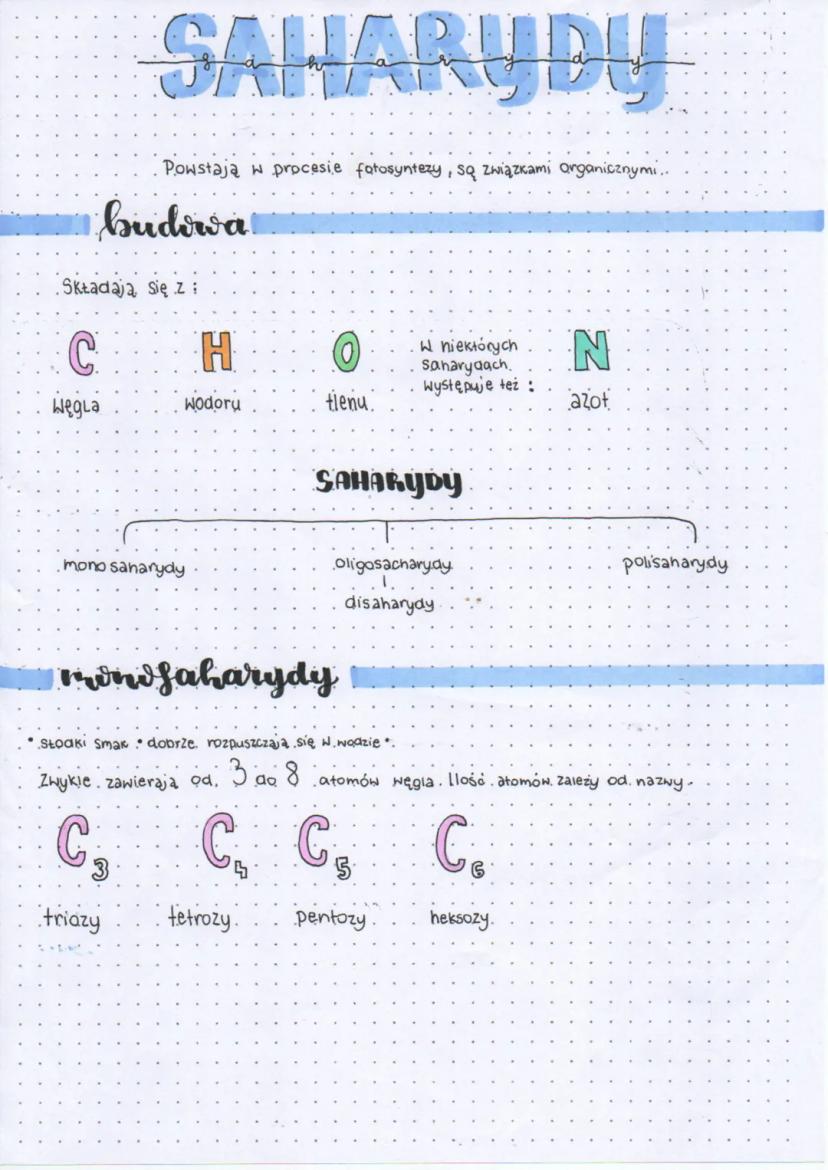 SAHARYDY
saharydy
Powstają w procesie fotosyntezy, są związkami organicznymi.
budowa
Składają się z:
C H O N
W niektórych
saharydach
występuje też:
węgla wodoru tlenu azot
SAHARYDY
monosaharydy oligosacharydy polisaharydy
disaharydy
monosaharydy
• słodki smak • dobrze rozpuszczają się w wodzie •
Zwykle zawierają od 3 do 8 atomów węgla. Ilość atomów zależy od nazwy.
C3 C4 C5 C6
triozy tetrozy pentozy heksozy